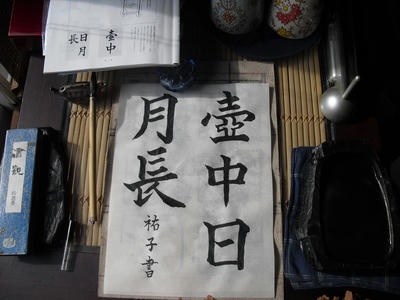 壺中
日月
長
壺中日
月長
祐子書